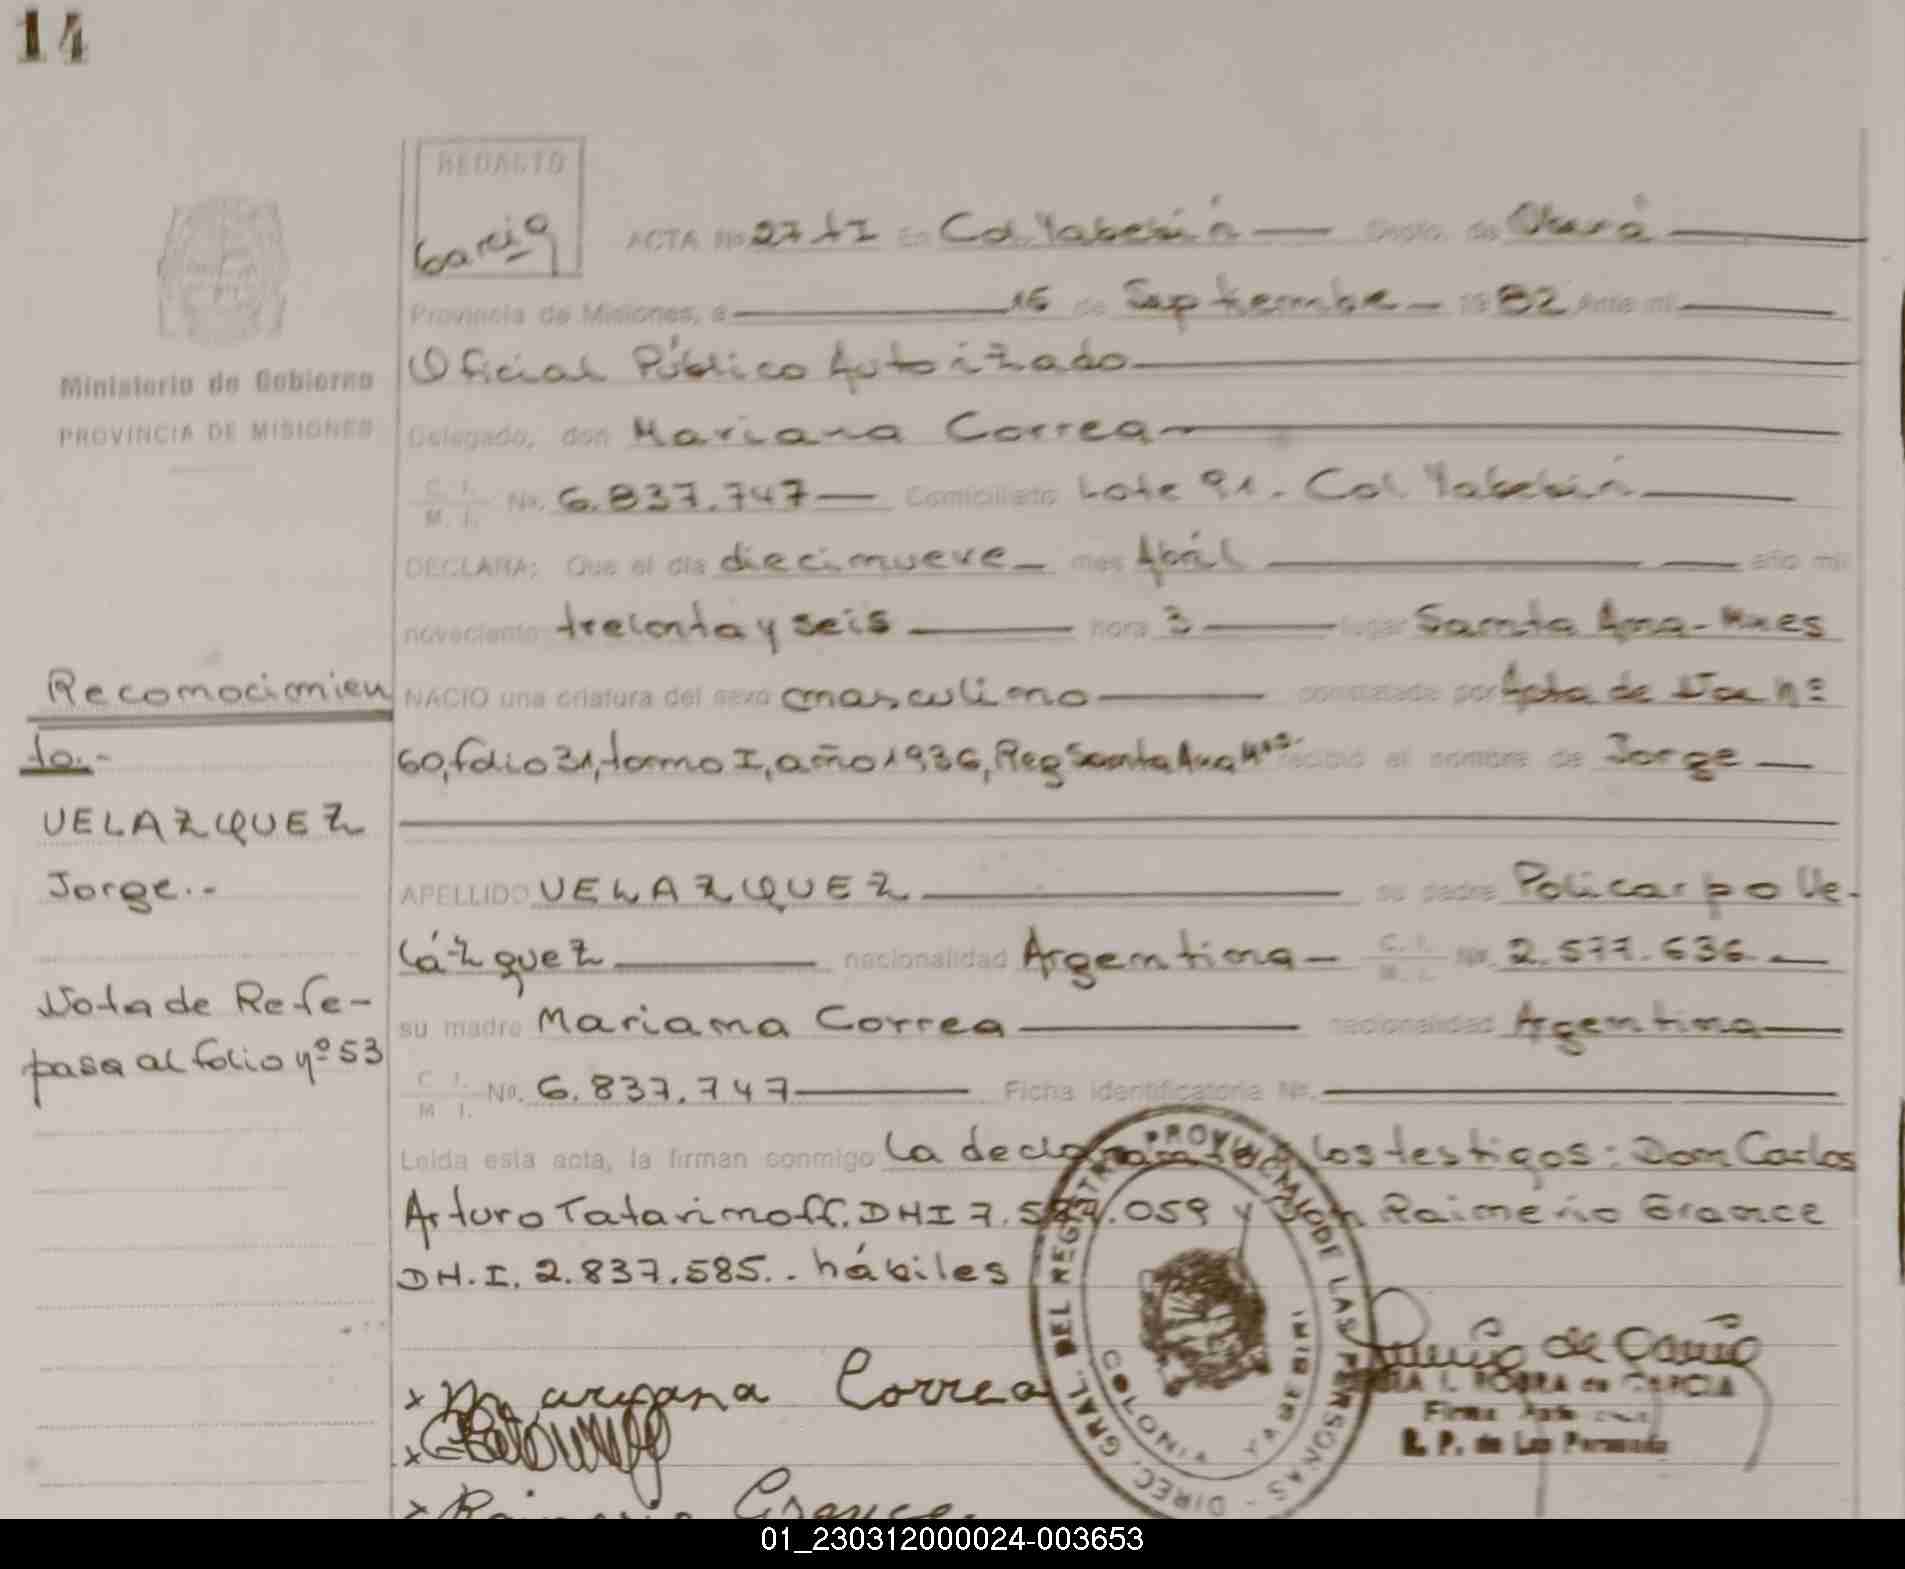 14
REDACTO
Garcia
ACTA No 27 tI En Col. Yabebirí Dpto. de Oberá
Provincia de Misiones, a 16 de Septiembre 1982 Ante mi
Oficial Público Autorizado
Ministerio de Gobierno
PROVINCIA DE MISIONES
Delegado, don Mariana Correa
C. I. M. I. No. 6.837.747 Domiciliado Lote 91. Col Yabebirí
DECLARA: Que el día diecinueve mes Abril año mil
noveciento treinta y seis hora 3 lugar Santa Ana - Mnes
Reconocimien
to.-
NACIO una criatura del sexo masculino constatada por Acta de Nac nº
60, folio 31, tomo I, año 1936, Reg Santa Ana Mnes. recibió el nombre de Jorge
VELAZQUEZ
Jorge.-
APELLIDO VELAZQUEZ su padre Policarpo Ve-
lázquez nacionalidad Argentina C. I. M. I. No. 2.577.636
Nota de Refe-
pasa al folio nº 53
su madre Mariana Correa nacionalidad Argentina
C. I. M. I. No. 6.837.747 Ficha identificatoria No.
Leída esta acta, la firman conmigo la declarante y los testigos: Don Carlos
Arturo Tatarinoff. DNI 7. .059 y Don Raimerio Grance
DN.I. 2.837.585.. hábiles
DIREC. GRAL. DEL REGISTRO PROVINCIAL DE LAS PERSONAS -
COLONIA YABEBIRI
x Maryana Correa
x
x Grance
de Garcia
I. de GARCIA
Firma
R. P. de Las Personas
01_230312000024-003653